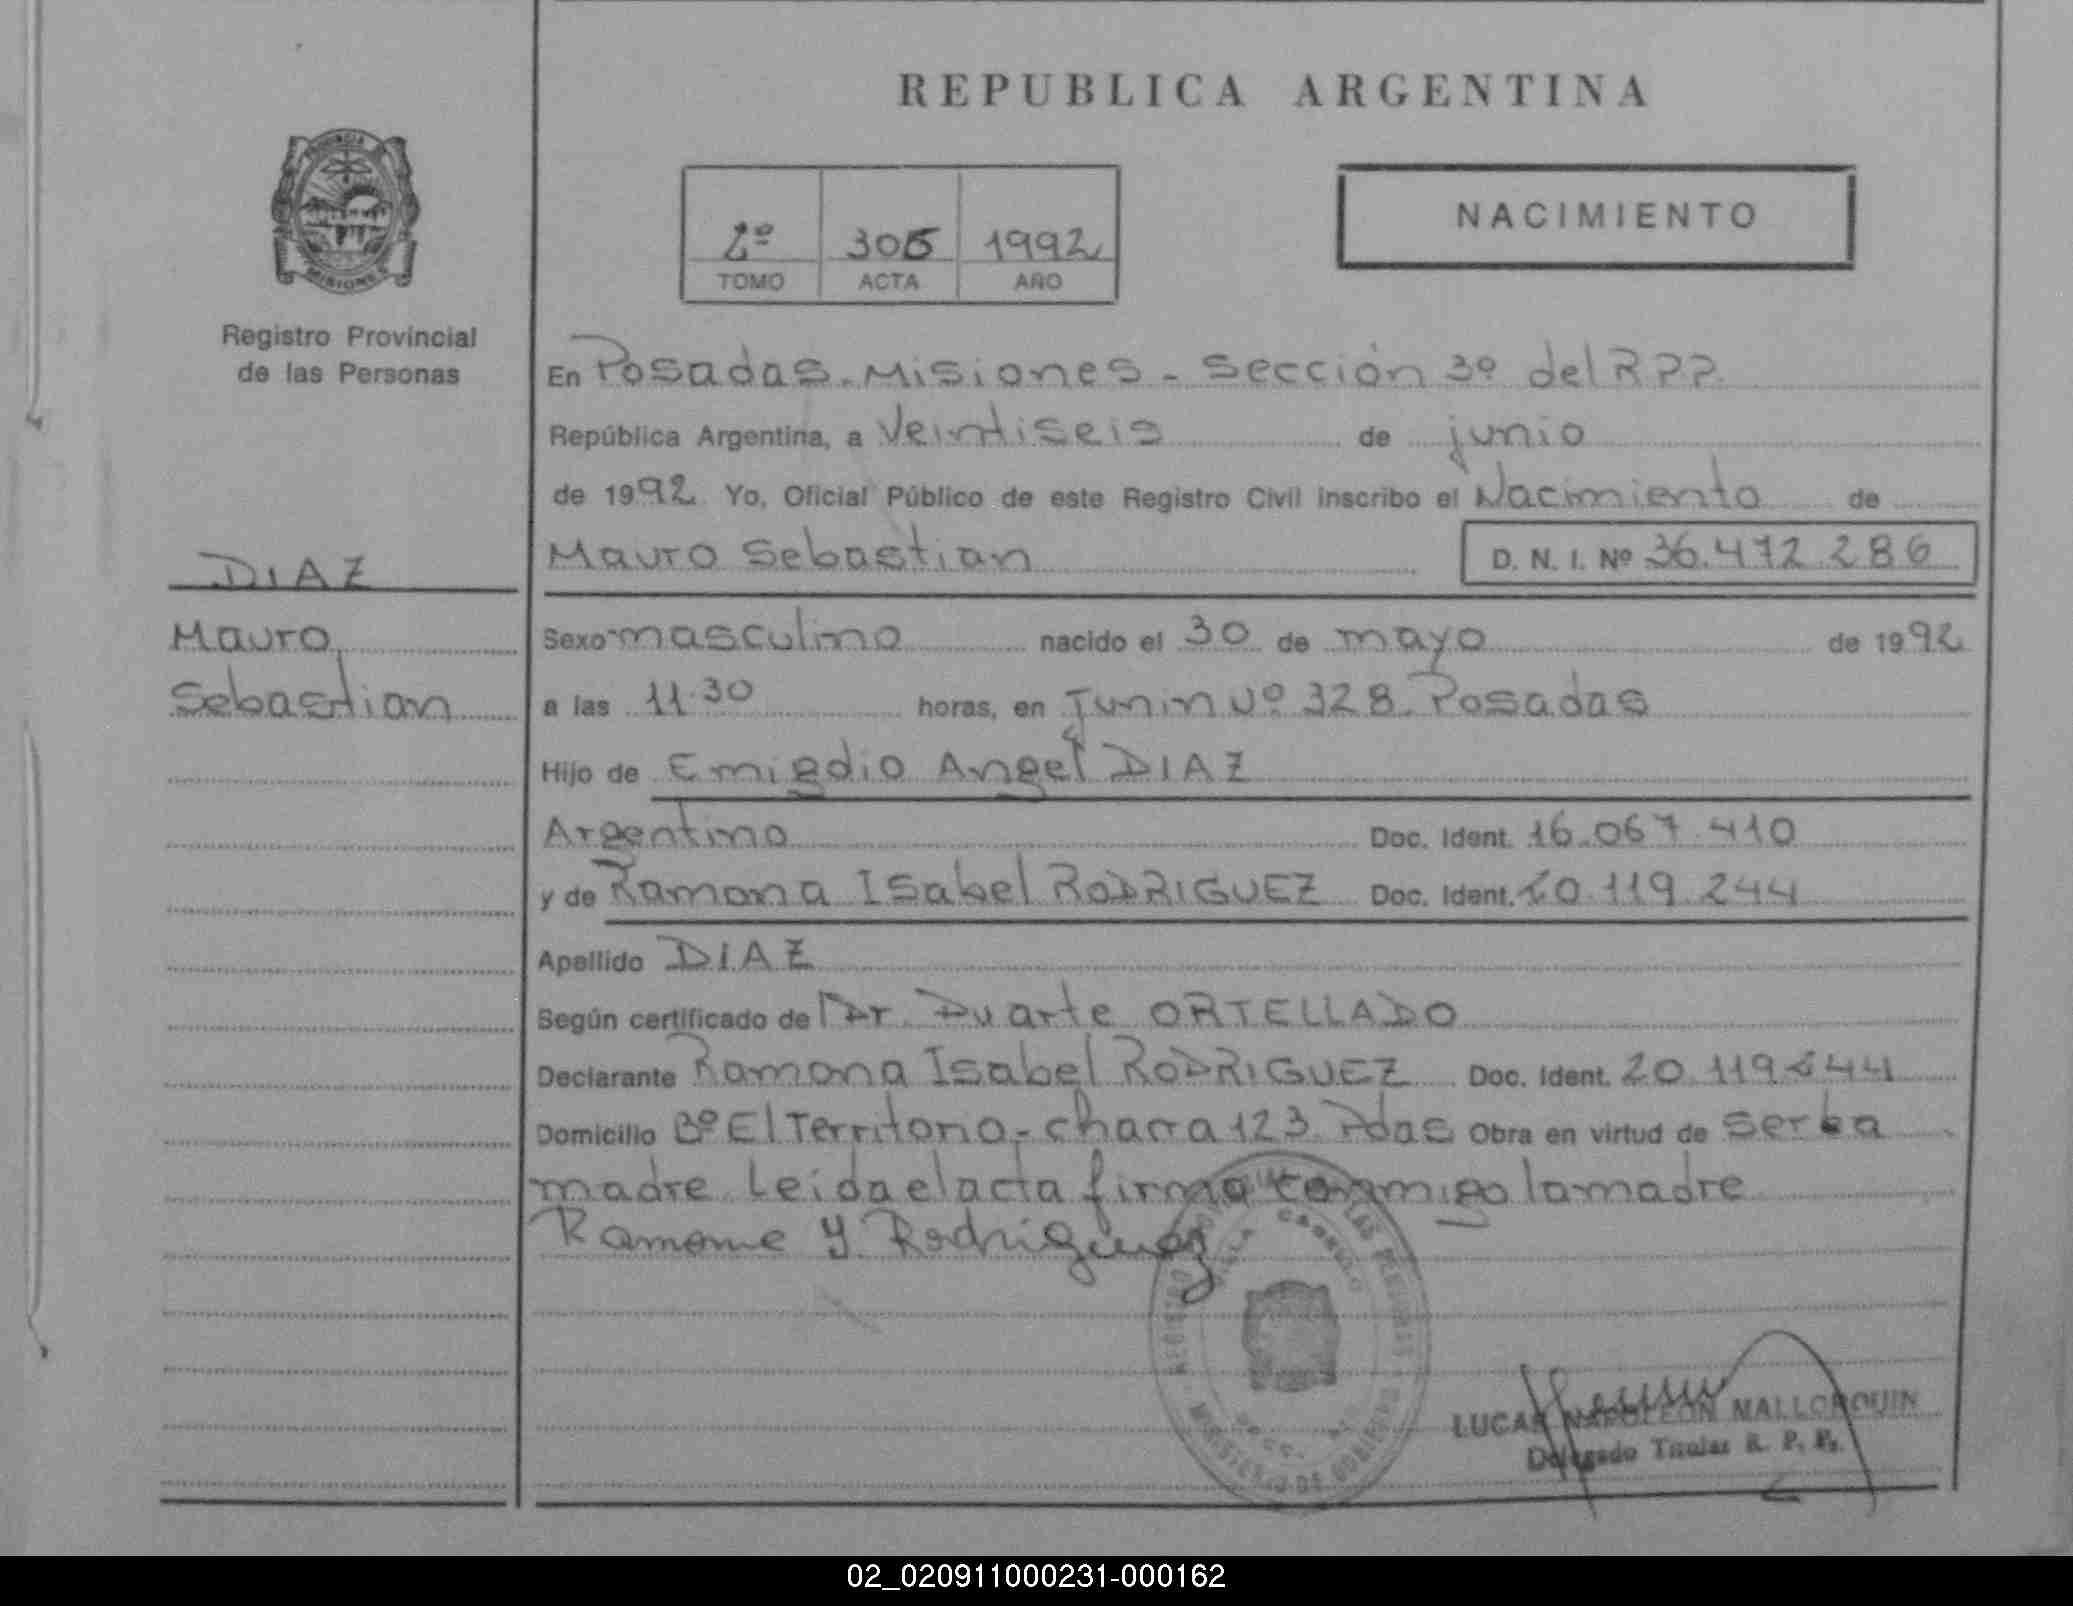 REPUBLICA ARGENTINA
NACIMIENTO
2º 305 1992
TOMO ACTA AÑO
Registro Provincial
de las Personas
En Posadas - Misiones - Sección 3º del R P P.
República Argentina, a Veintiseis de junio
de 1992 Yo, Oficial Público de este Registro Civil inscribo el Nacimiento de
Mauro Sebastian D. N. I. Nº 36.472.286
DIAZ
Mauro
Sebastian
Sexo masculino nacido el 30 de mayo de 1992
a las 11.30 horas, en Junin Nº 328. Posadas
Hijo de Emigdio Angel DIAZ
Argentino Doc. Ident. 16.067.410
y de Ramona Isabel RODRIGUEZ Doc. Ident. 20.119.244
Apellido DIAZ
Según certificado de Dr. Duarte ORTELLADO
Declarante Ramona Isabel RODRIGUEZ Doc. Ident. 20.119.244
Domicilio Bº El Territorio - chacra 123. Pdas Obra en virtud de ser la
madre. Leida el acta firma conmigo la madre
Ramona Y. Rodriguez
LUCAS NAPOLEON MALLORQUIN
Delegado Titular R. P. P.
02_020911000231-000162